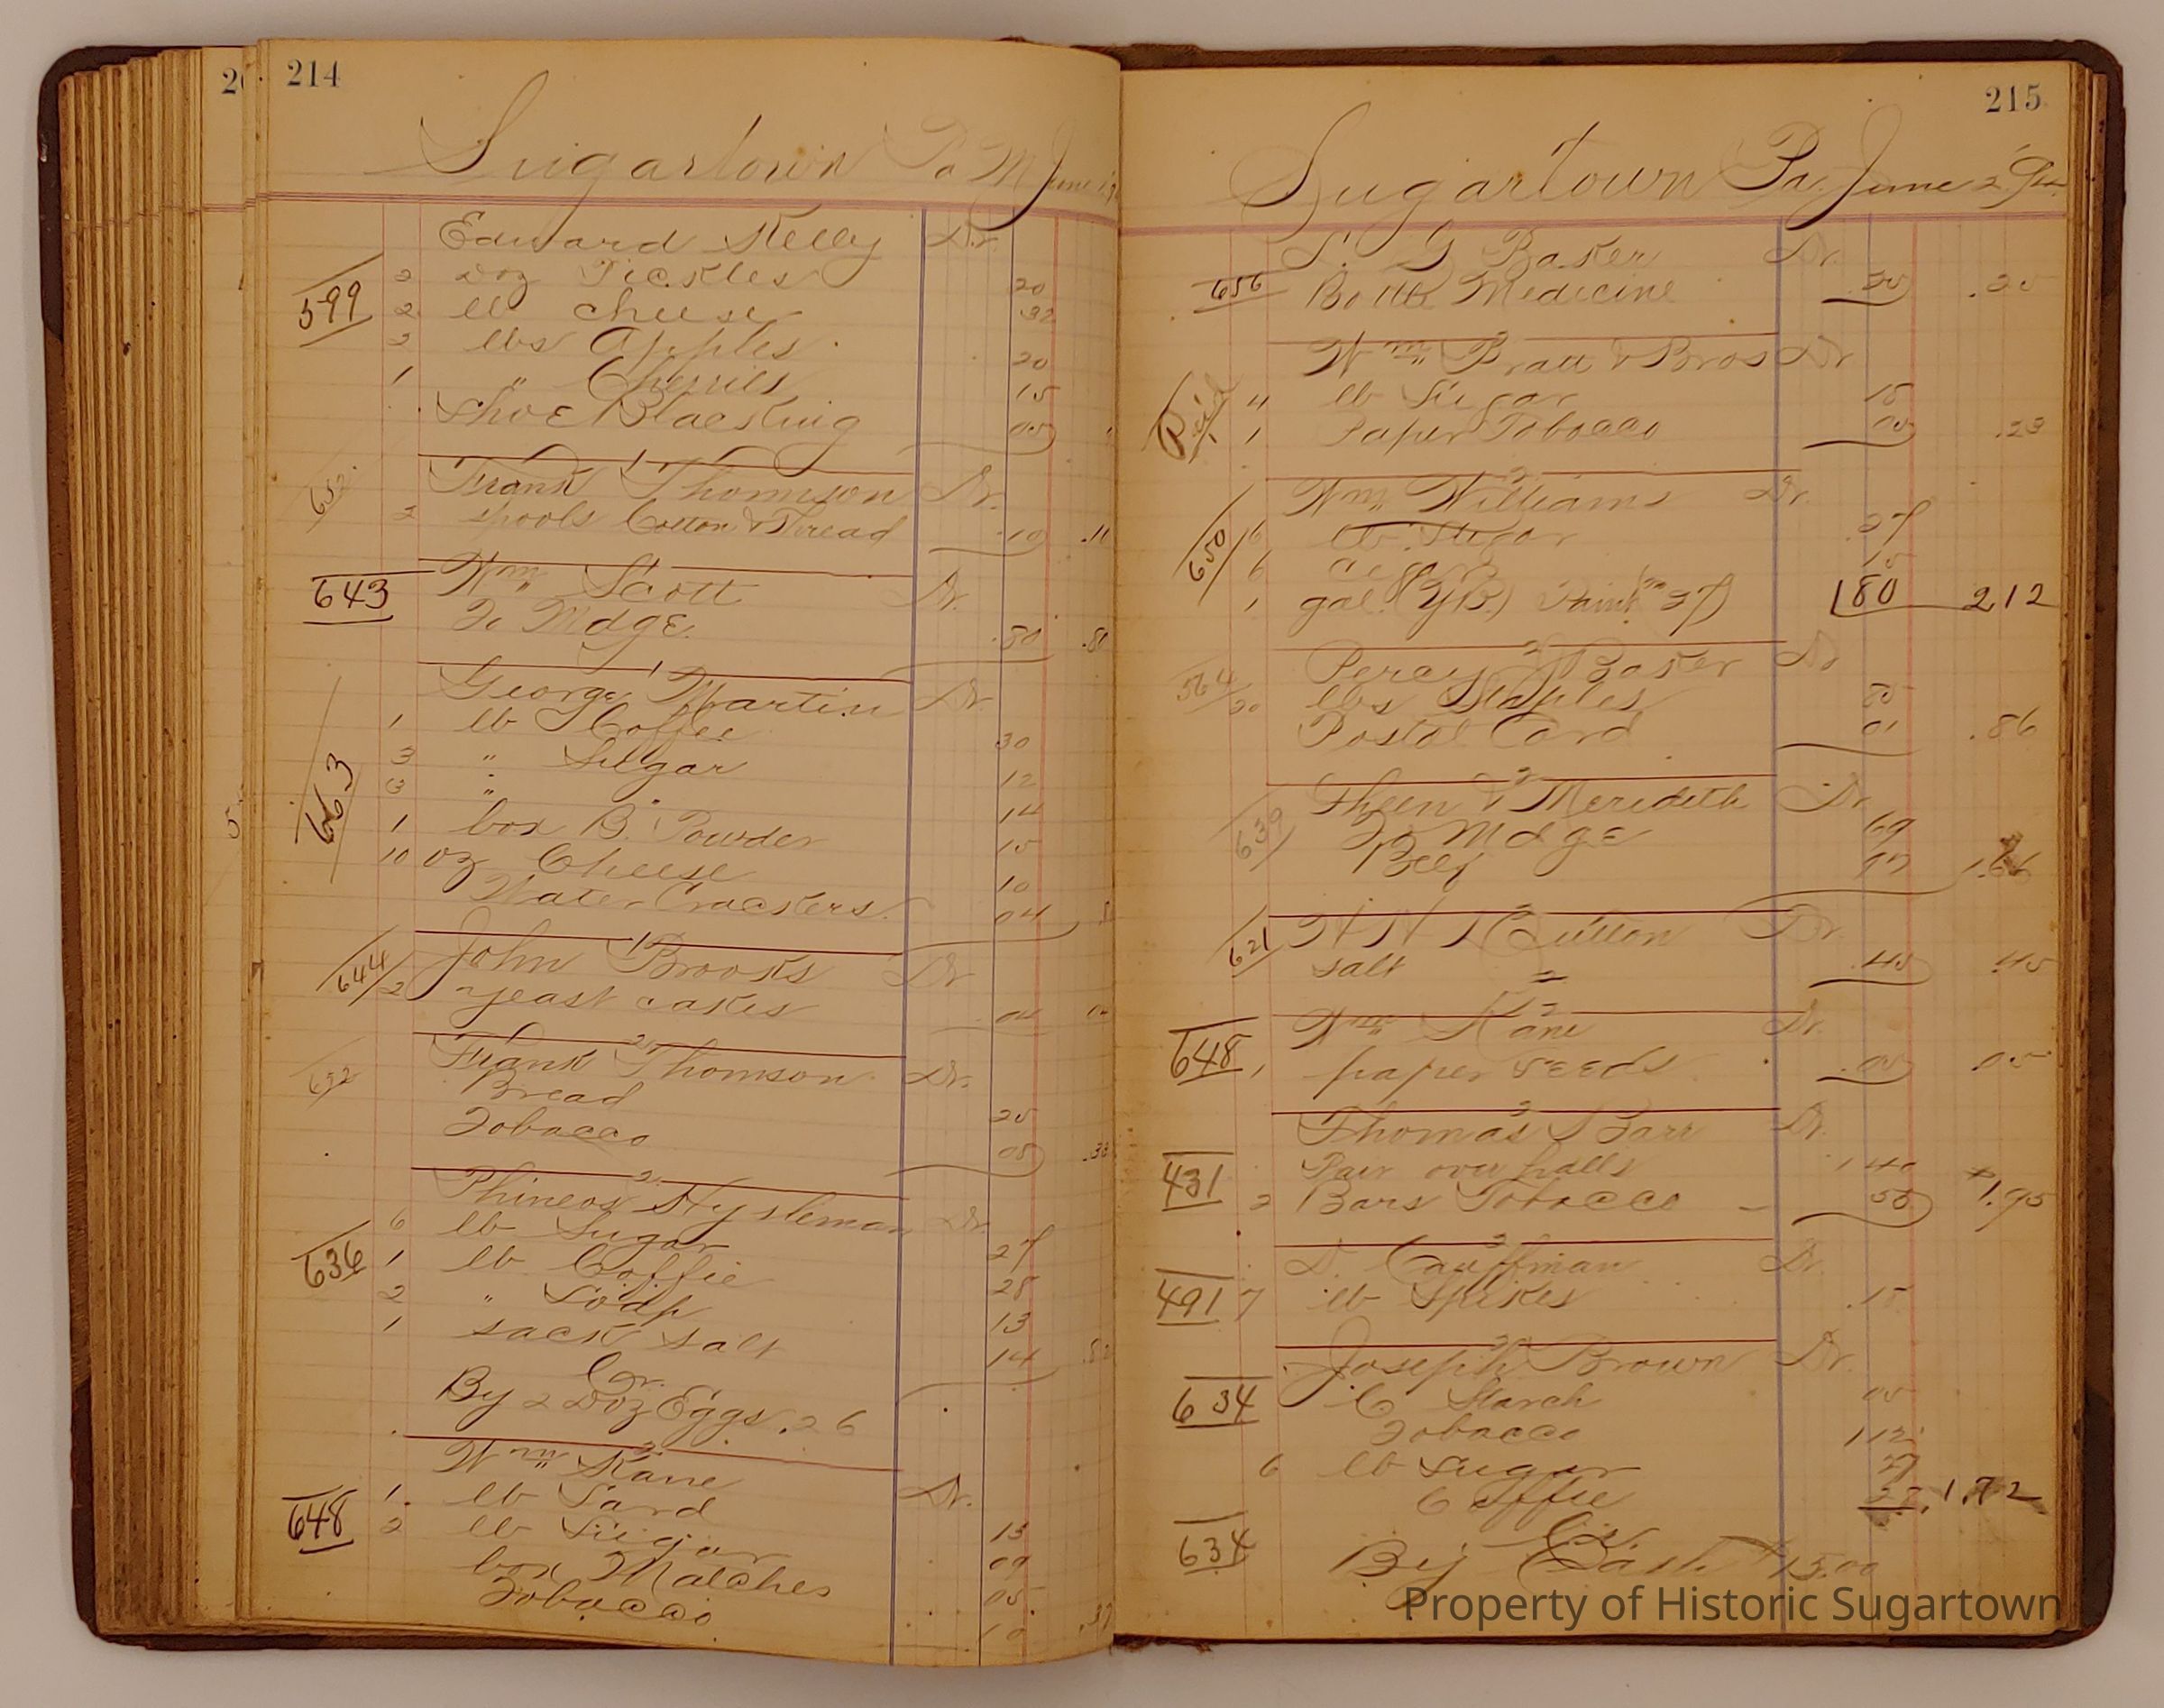 214
Sugartown Pa M June 1
Edward Kelly Dr.
599
2 Doz Pickles 20
2 lb Cheese .32
2 lbs Apples 20
1 " Cherries 15
Shoe Blacking 05
1
652 Frank Thomson Dr.
2 spools Cotton & Thread .10
Wm Scott Dr.
643
To Mdge. .80
1
George Martin Dr.
663
1 lb Coffee 30
3 " Sugar 12
3 " " 14
1 box B. Powder 15
10 oz Cheese 10
Water Crackers 04
1
John Brooks Dr
644 2 yeast cakes 04
2
652 Frank Thomson Dr.
Bread 25
Tobacco 08
2
Phineos Hysleman Dr.
6 lb Sugar 27
636 1 lb Coffie 28
2 " Soap 13
1 sack salt 14
Cr.
By 2 Doz Eggs .26
2
Wm Kane Dr.
648 1 lb Lard 13
2 lb Sugar 09
box Matches 05
Tobacco 10 .37
215
Sugartown Pa. June 2
S. G Baker Dr.
656 Bottle Medicine .25
2
Wm Pratt & Bros Dr
Pd 4 lb Sugar 18
1 Paper Tobacco 05 .23
2
Wm Williams Dr.
650 6 lb Sugar .27
6 15
1 gal. (YB) Paint 180 2 12
2
Percy Baker Dr
564 20 lbs Staples 85
Postal Card 01 .86
2
Sheen & Meredith Dr
639 To Mdge 69
Beef 97 1.66
2
621 Hutton Dr.
salt .45 .45
2
Wm Kane Dr.
648 1 paper seeds .05 05
2
Thomas Barr Dr.
431 Pair over halls 1 40
2 Bars Tobacco 55 1.95
2
D. Cauffman Dr.
491 7 lb Spikes .18
2
Joseph Brown Dr.
634 C Starch 05
Tobacco 112
6 lb Sugar 27
Coffie 28 1.72
Cr.
634 By Cash $15.00
Property of Historic Sugartown